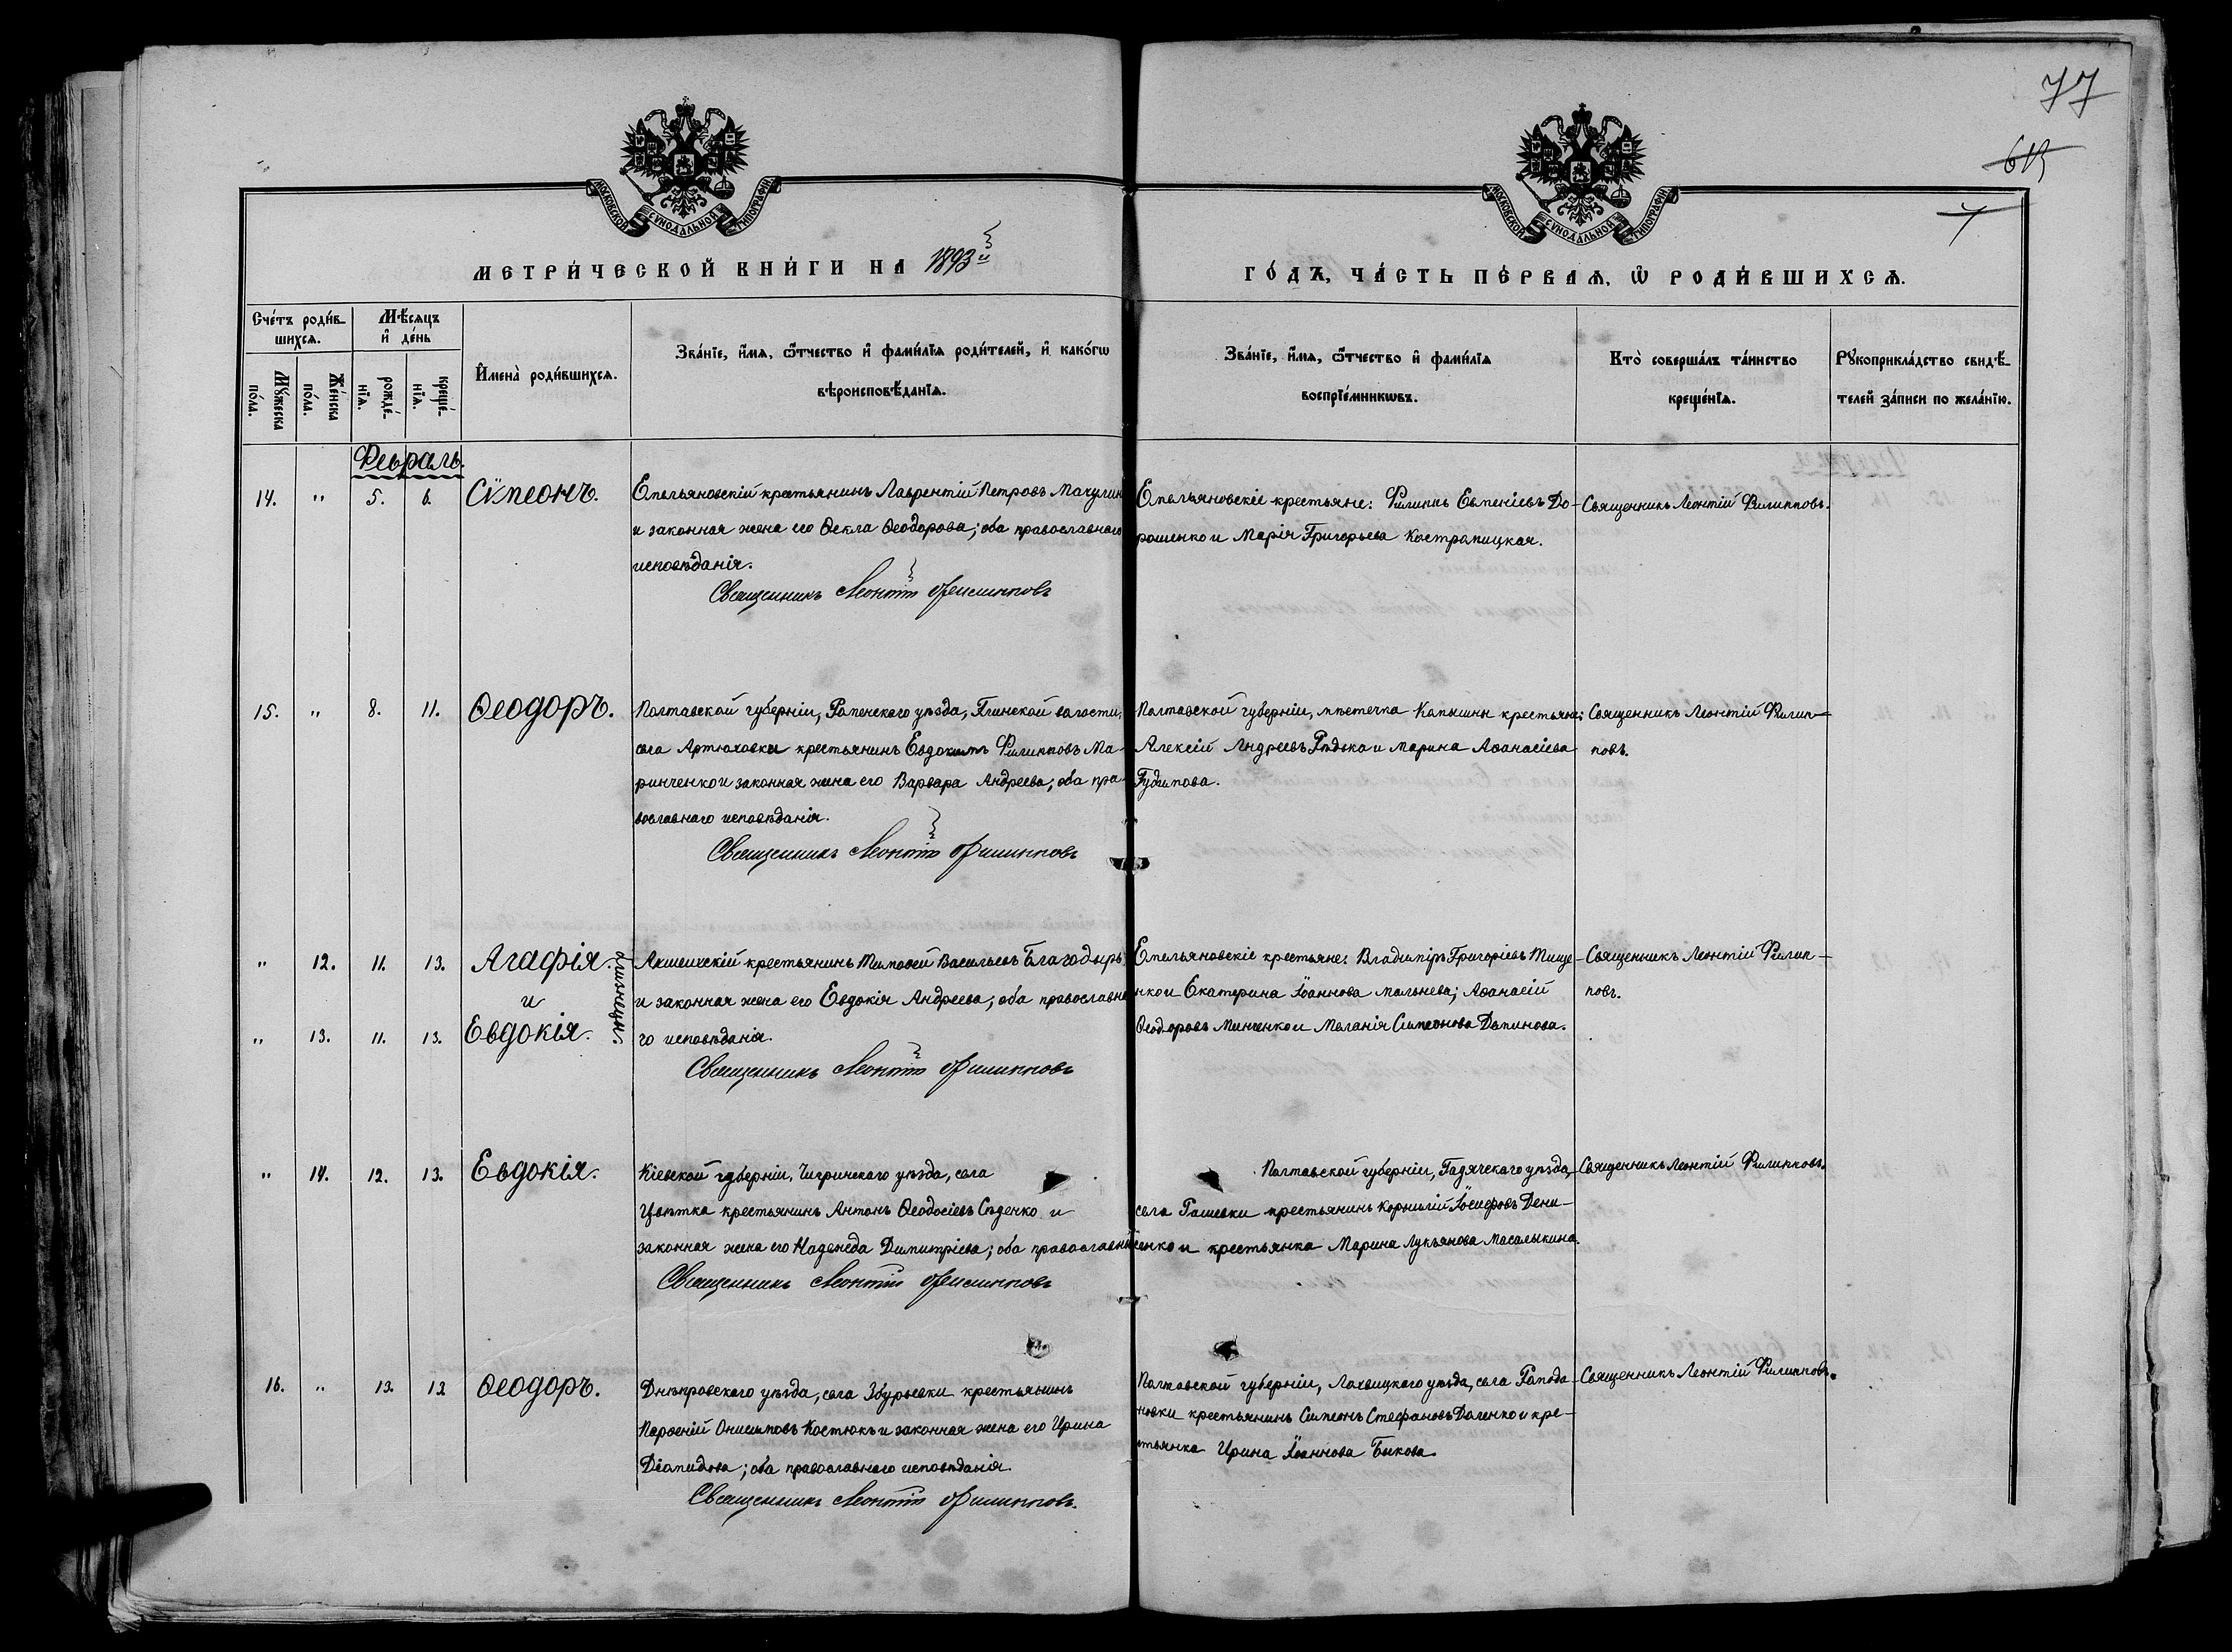 77
615
7
МОСКОВСКОЙ СѴНОДАЛЬНОЙ ТИПОГРАФІИ
МОСКОВСКОЙ СѴНОДАЛЬНОЙ ТИПОГРАФІИ
МЕТРИ́ЧЕСКОЙ КНИ́ГИ НА 1893й
ГО́ДЪ, ЧА́СТЬ ПЕ́РВАЯ, Ѿ РОДИ́ВШИХСЯ.
Сче́тъ роди́в-
шихся.
Мѣ́сяцъ
и҆ де́нь
Мꙋ́жеска
по́ла.
Же́нска
по́ла.
рожде́-
нїя.
креще́-
нїя.
И҆мена̀ роди́вшихся.
Зва́нїе, и҆́мя, ѻ҆́тчество и҆ фами́лїя роди́телей, и҆ како́гѡ
вѣроисповѣ́данїя.
Зва́нїе, и҆́мя, ѻ҆́тчество и҆ фами́лїя
воспрїе́мникѡвъ.
Кто̀ соверша́лъ та́инство
креще́нїя.
Рꙋкоприкла́дство свидѣ́-
телей за́писи по жела́нїю.
Февраль.
14. " 5. 6. Сѵмеонъ.
Емельяновскій крестьянинъ Лаврентій Петровъ Махулин
и законная жена его Ѳекла Ѳеодорова; оба православнаго
исповѣданія.
Священникъ Леонтій Филипповъ
Емельяновскіе крестьяне: Филиппъ Евменіевъ До-
рошенко и Марія Григорьева Кострапицкая.
Священникъ Леонтій Филипповъ.
15. " 8. 11. Ѳеодоръ.
Полтавской губерніи, Роменскаго уѣзда, Глинской волости,
села Артюховки крестьянинъ Евдокимъ Филипповъ Ма-
ринченко и законная жена его Варвара Андреева; оба пра-
вославнаго исповѣданія.
Священникъ Леонтій Филипповъ
Полтавской губерніи, мѣстечка Капышны крестьяне:
Алексій Андреевъ Рѣдька и Марина Аѳанасіева
Гудимова.
Священникъ Леонтій Филип-
повъ.
" 12. 11. 13. Агафія
и
" 13. 11. 13. Евдокія.
близнецы.
крестьянинъ Тимоѳей Васильевъ Благодыръ
и законная жена его Евдокія Андреева; оба православна
го исповѣданія.
Священникъ Леонтій Филипповъ
Емельяновскіе крестьяне: Владиміръ Григоріевъ Тище-
нко и Екатерина Іоаннова Мальнева; Аѳанасій
Ѳеодоровъ Минченко и Меланія Симеонова Доминова.
Священникъ Леонтій Филип-
повъ.
" 14. 12. 13. Евдокія.
Кіевской губерніи, Чигринскаго уѣзда, села
Цвѣтка крестьянинъ Антонъ Ѳеодосіевъ Сѣденко и
законная жена его Надежда Димитріева; оба православны
Священникъ Леонтій Филипповъ
Полтавской губерніи, Гадячскаго уѣзда,
села Рашевки крестьянинъ Корнилій Іосифовъ Дени-
сенко и крестьянка Марина Лукьянова Масалыкина.
Священникъ Леонтій Филипповъ.
16. " 13. 13 Ѳеодоръ.
Днѣпровскаго уѣзда, села Збурьевки крестьянинъ
Парѳеній Онисимовъ Костюкъ и законная жена его Ирина
Діомидова; оба православнаго исповѣданія.
Священникъ Леонтій Филипповъ.
Полтавской губерніи, Лохвицкаго уѣзда, села Рапода-
новки крестьянинъ Симеонъ Стефановъ Даленко и кре-
стьянка Ирина Іоаннова Быкова.
Священникъ Леонтій Филипповъ.